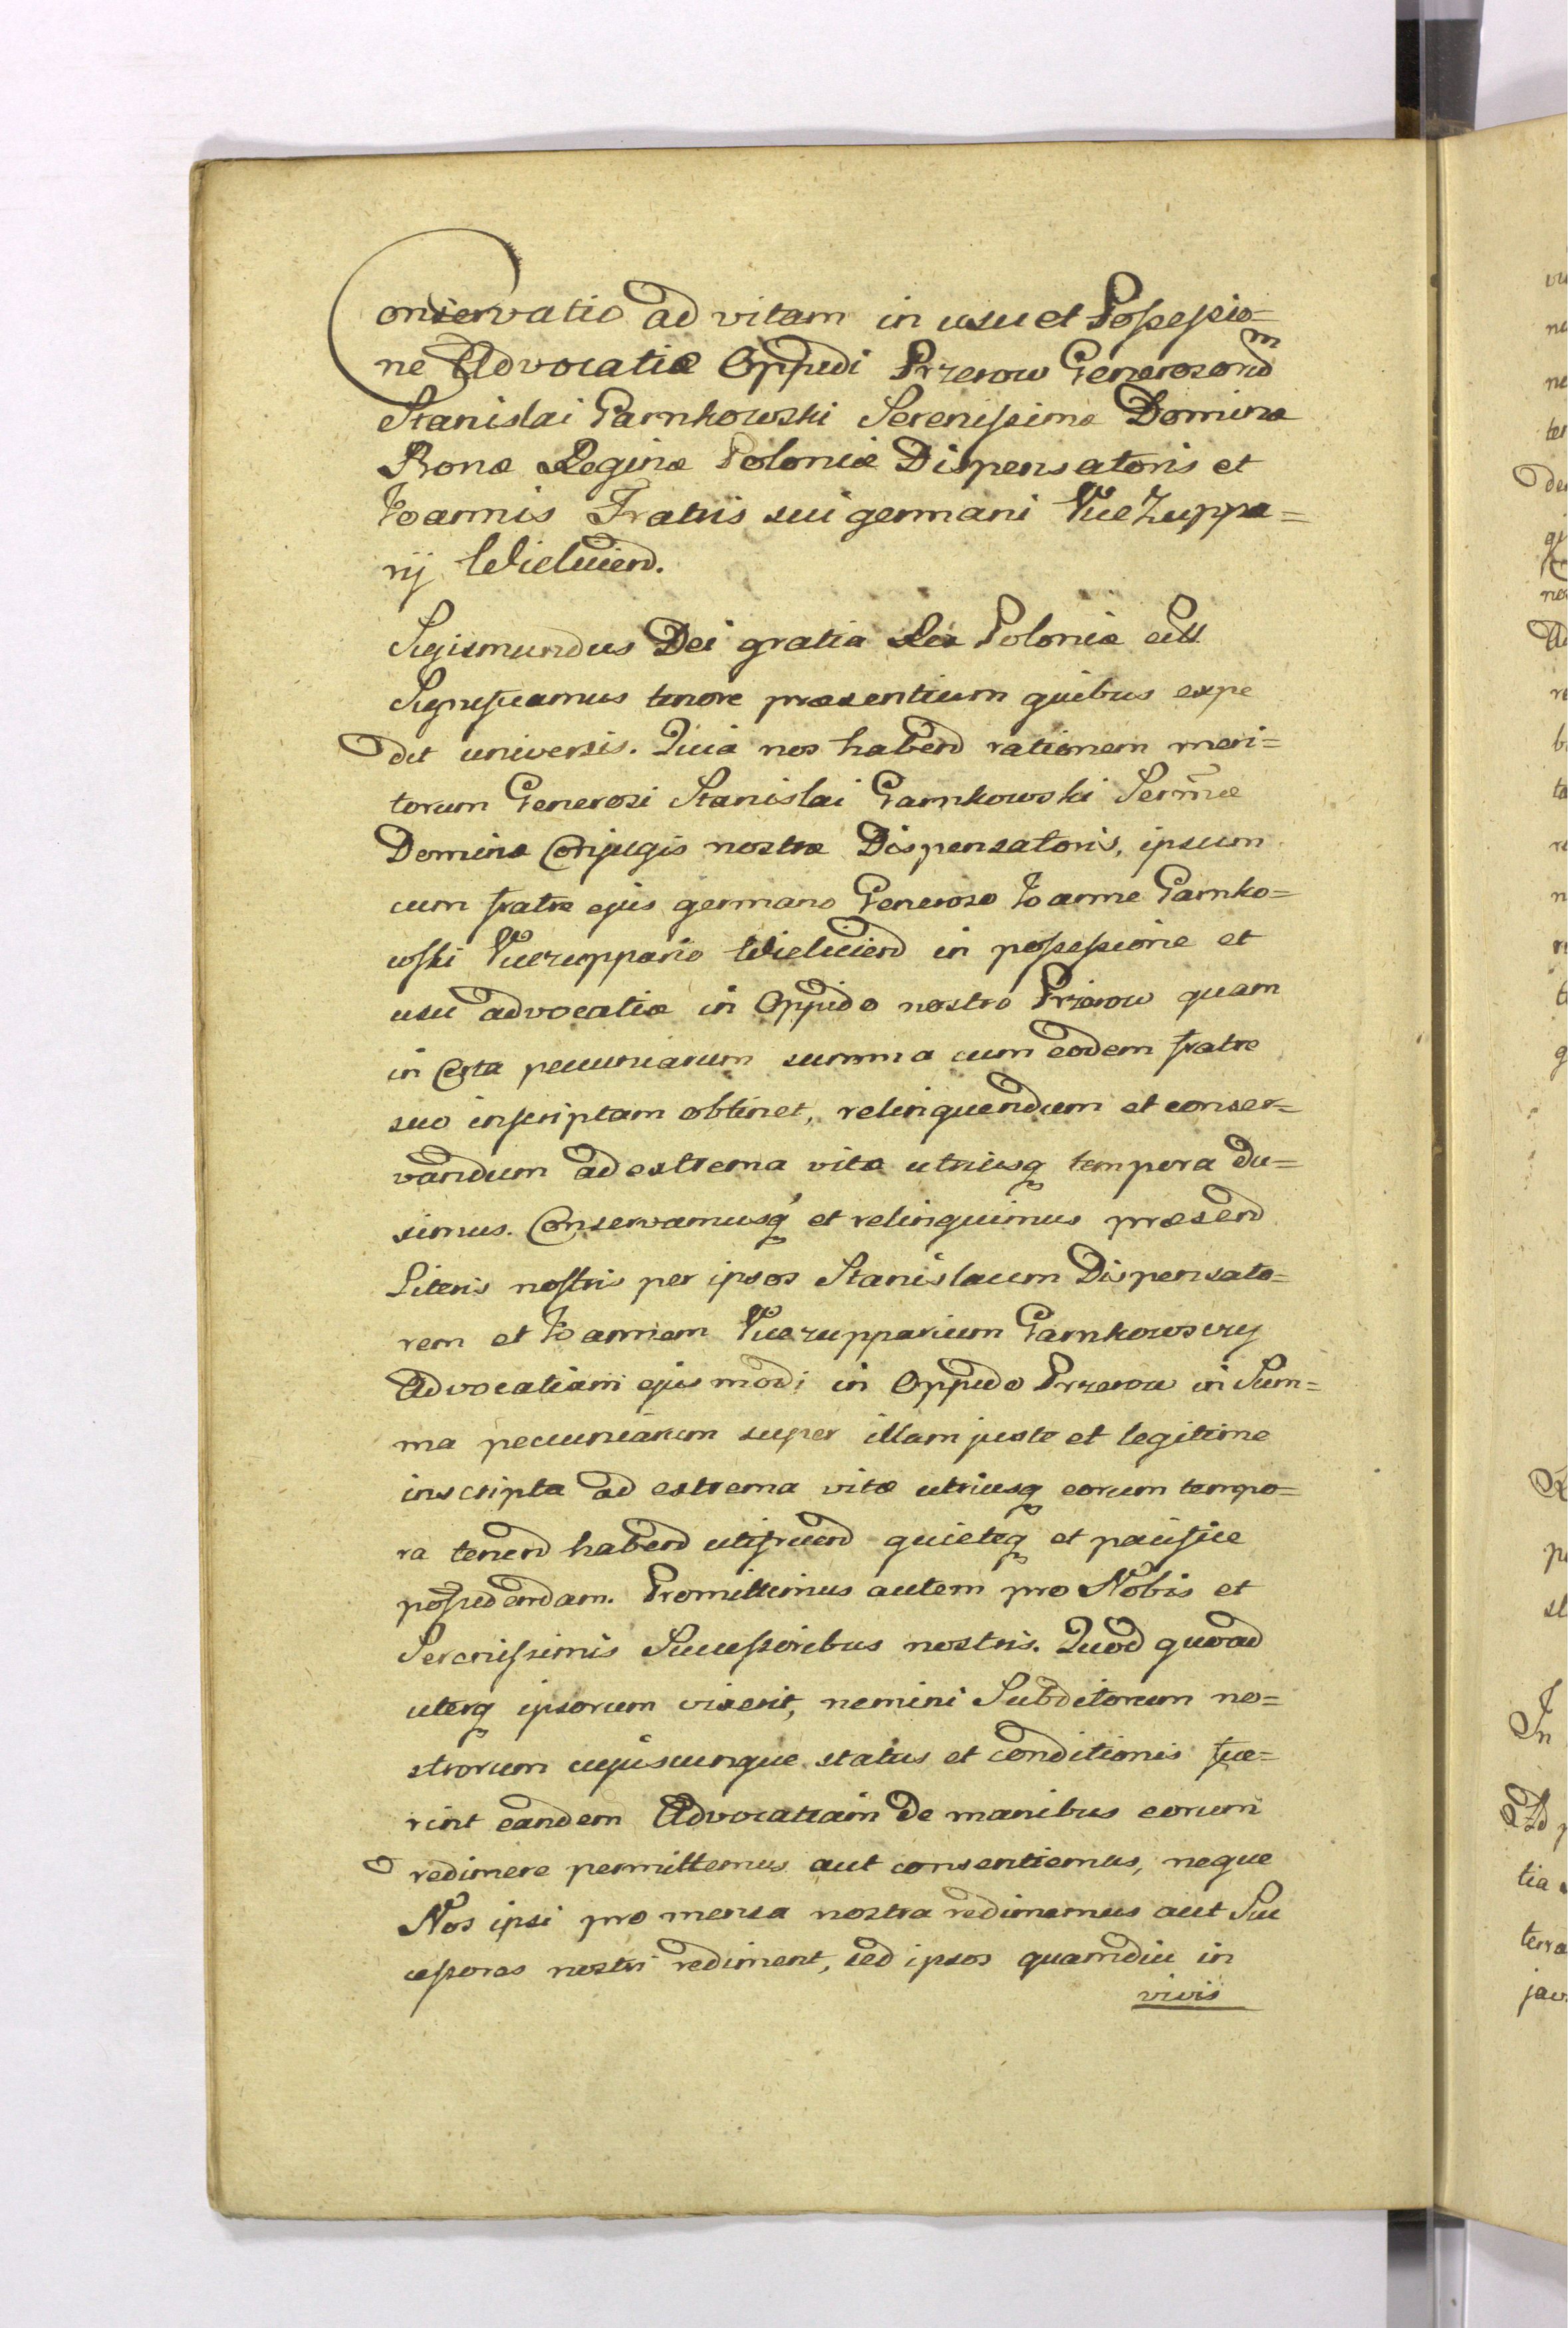 Conservatio ad vitam in usu et Possessio=
ne Advocatiæ Oppidi Przerow Generosord m
Stanislai Garnkowski Serenissimæ Dominæ
Bonæ Reginæ Poloniæ Dispensatoris et
Ioannis Fratris sui germani ViceZuppa=
rij Wieliciend.
Sigismundus Dei gratia Rex Poloniæ etts
Significamus tenore præsentium quibus expe
dit universis. Quia nos habend rationem meri=
torum Generosi Stanislai Garnkowski Serm̃æ
Dominæ Conjugis nostræ Dispensatoris, ipsum
cum fratre ejus germano Generoso Ioanne Garnko=
wski Vicezuppario Wieliciend in possessione et
usu advocatiæ in Oppido nostro Przerow quam
in Certa pecuniarum summa cum eodem fratre
suo inscriptam obtinet, relinquendum et conser=
vandum ad extrema vitæ utriusq tempora du=
ximus. Conservamusq et relinquimus præsend
Literis nostris per ipsos Stanislaum Dispensato=
rem et Ioannem Vicezupparium Garnkowscy
Advocatiam ejusmodi in Oppido Przerow in Sum=
ma pecuniarum super illam juste et legitime
inscripta ad extrema vitæ utriusq eorum tempo=
ra tenend habend utifruend quieteq et pacifice
possidendam. Promittimus autem pro Nobis et
Serenissimis Successoribus nostris. Quod quoad
uterq ipsorum vixerit, nemini Subditorum no=
strorum cujuscunque status et conditionis fue=
rint eandem Advocatiam de manibus eorum
redimere permittemus aut consentiemus, neque
Nos ipsi pro mensa nostra redimemus aut Suc
cessores nostri rediment, sed ipsos quamdiu in
vivis